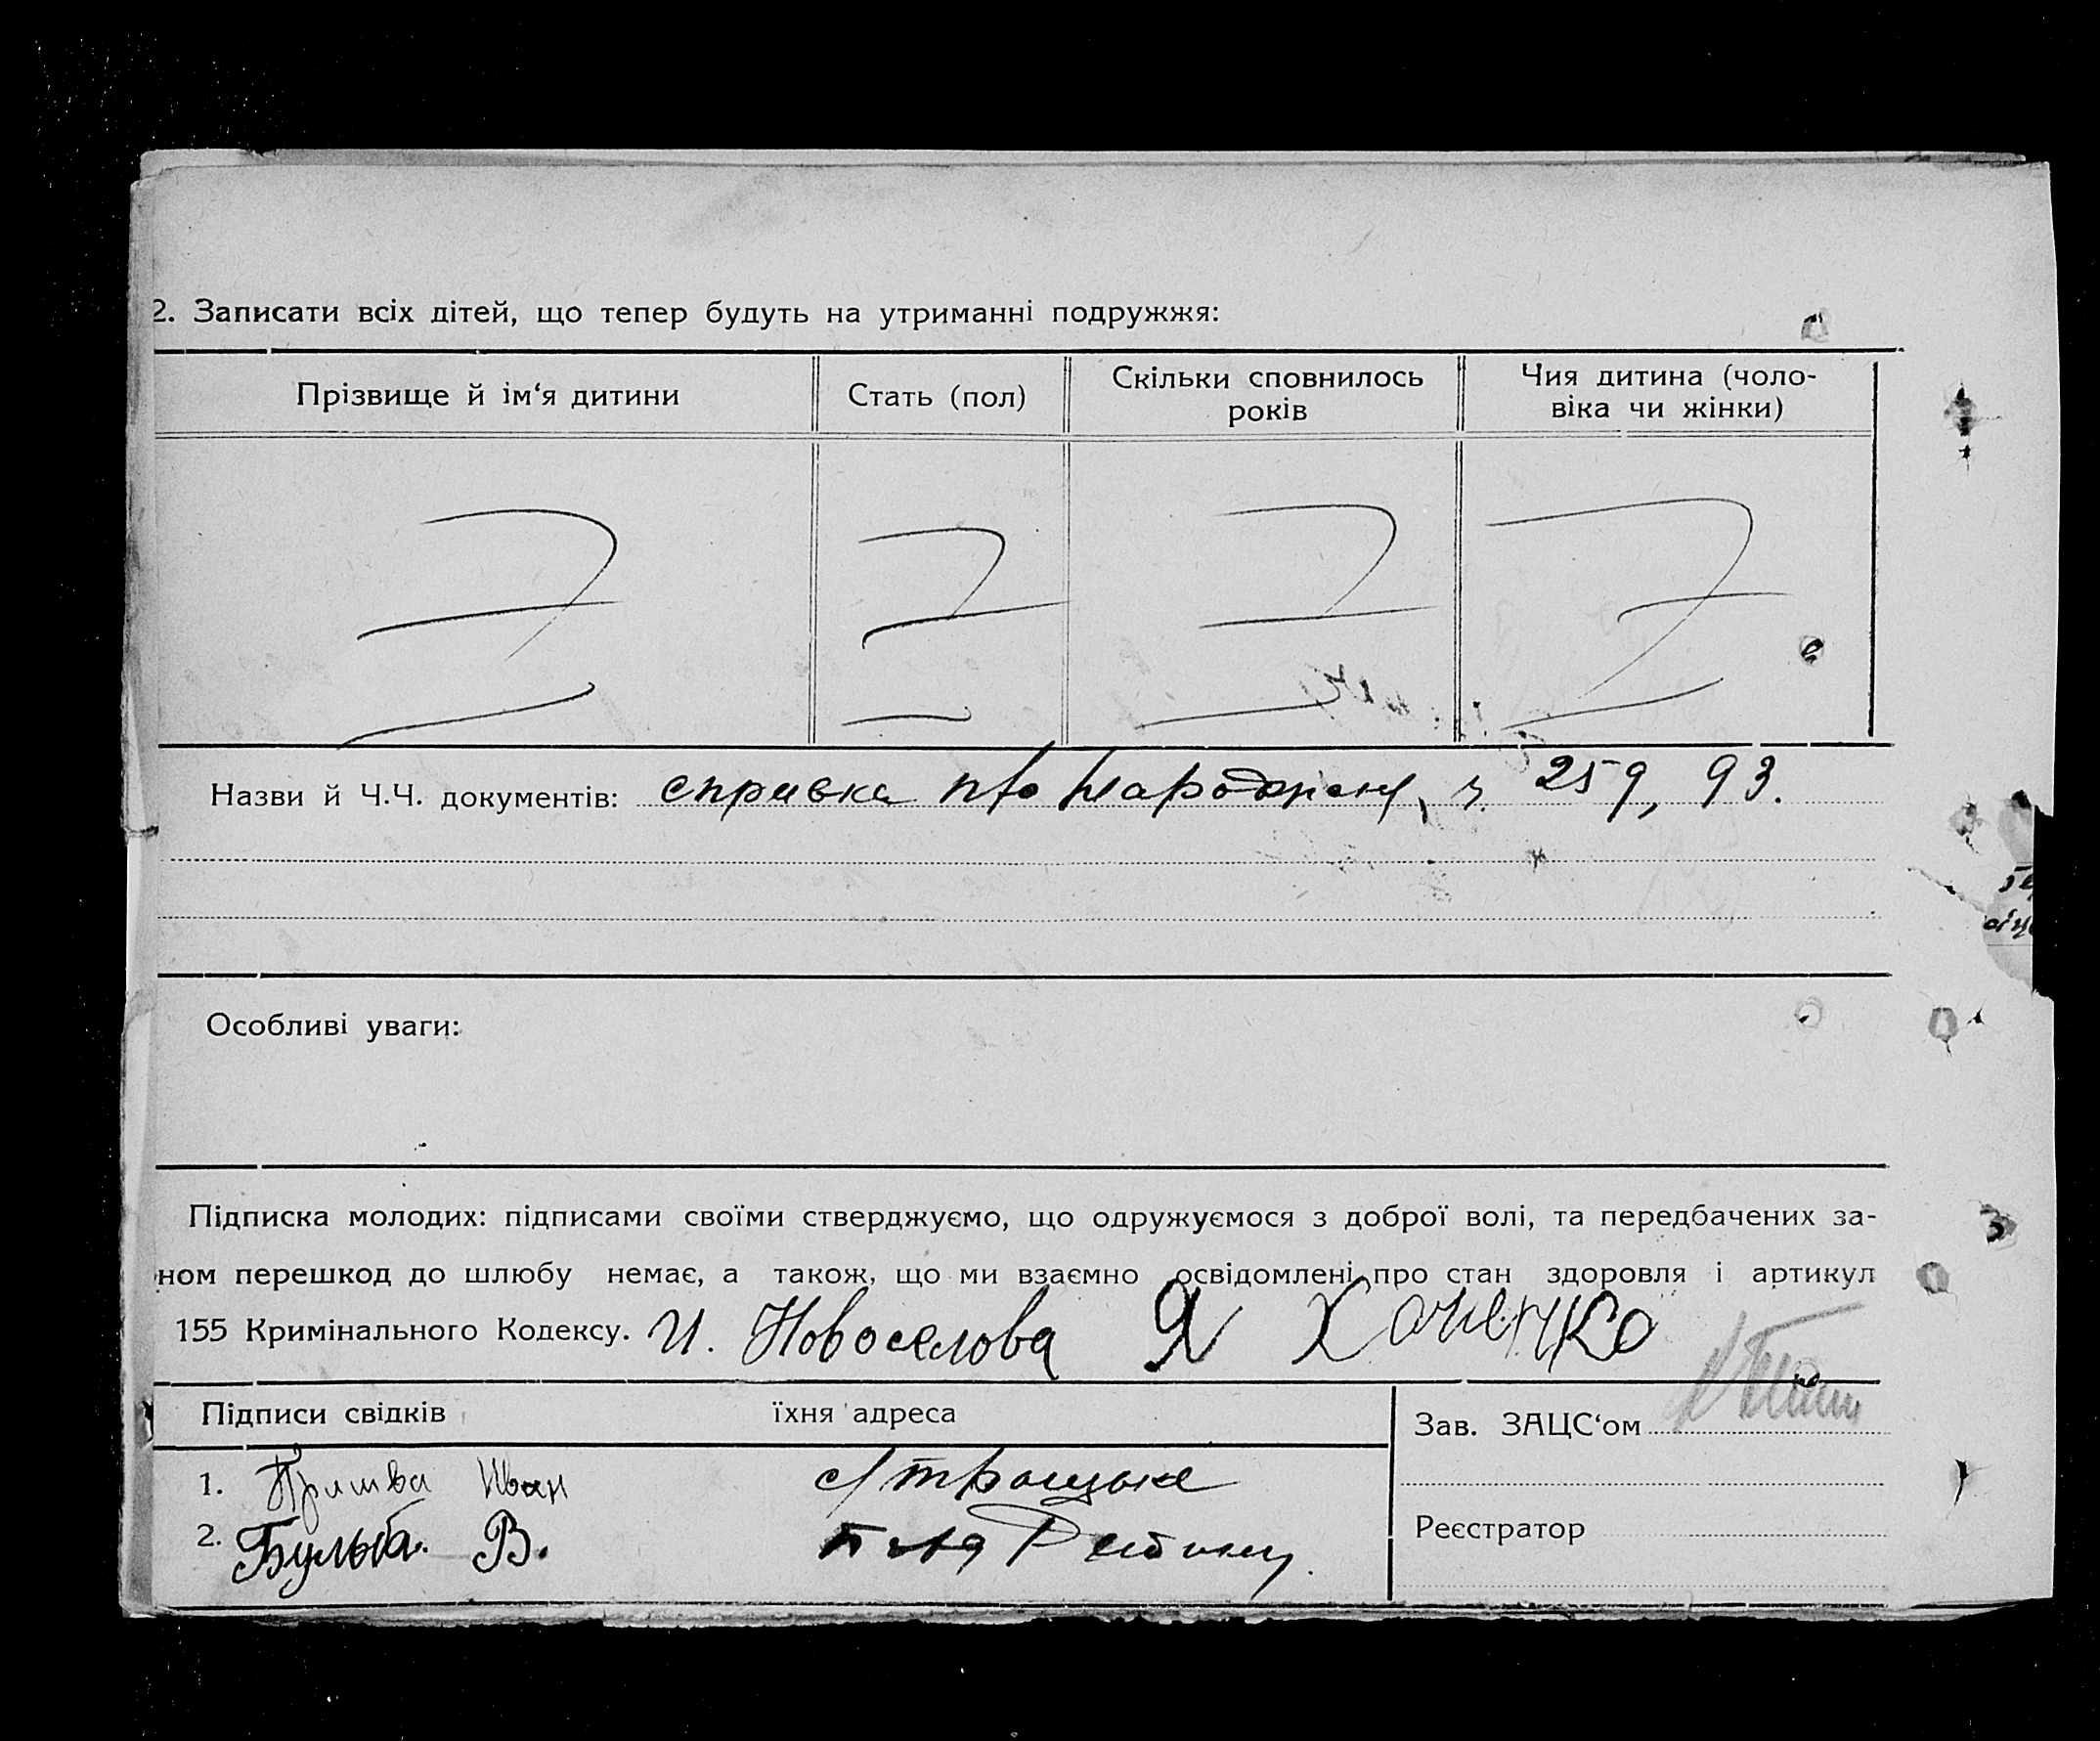 2. Записати всіх дітей, що тепер будуть на утриманні подружжя:
Прізвище й ім‘я дитини
Стать (пол)
Скільки сповнилось
років
Чия дитина (чоло-
віка чи жінки)
Назви й Ч.Ч. документів: справка про народжен, ч. 259, 93.
Особливі уваги:
Підписка молодих: підписами своїми стверджуємо, що одружуємося з доброї волі, та передбачених за-
ном перешкод до шлюбу немає, а також, що ми взаємно освідомлені про стан здоровля і артикул
155 Кримінального Кодексу. И. Новоселова Я Хоненко
Підписи свідків
їхня адреса
Зав. ЗАЦС‘ом
1. Иван
2. Бульба. В.
Реєстратор